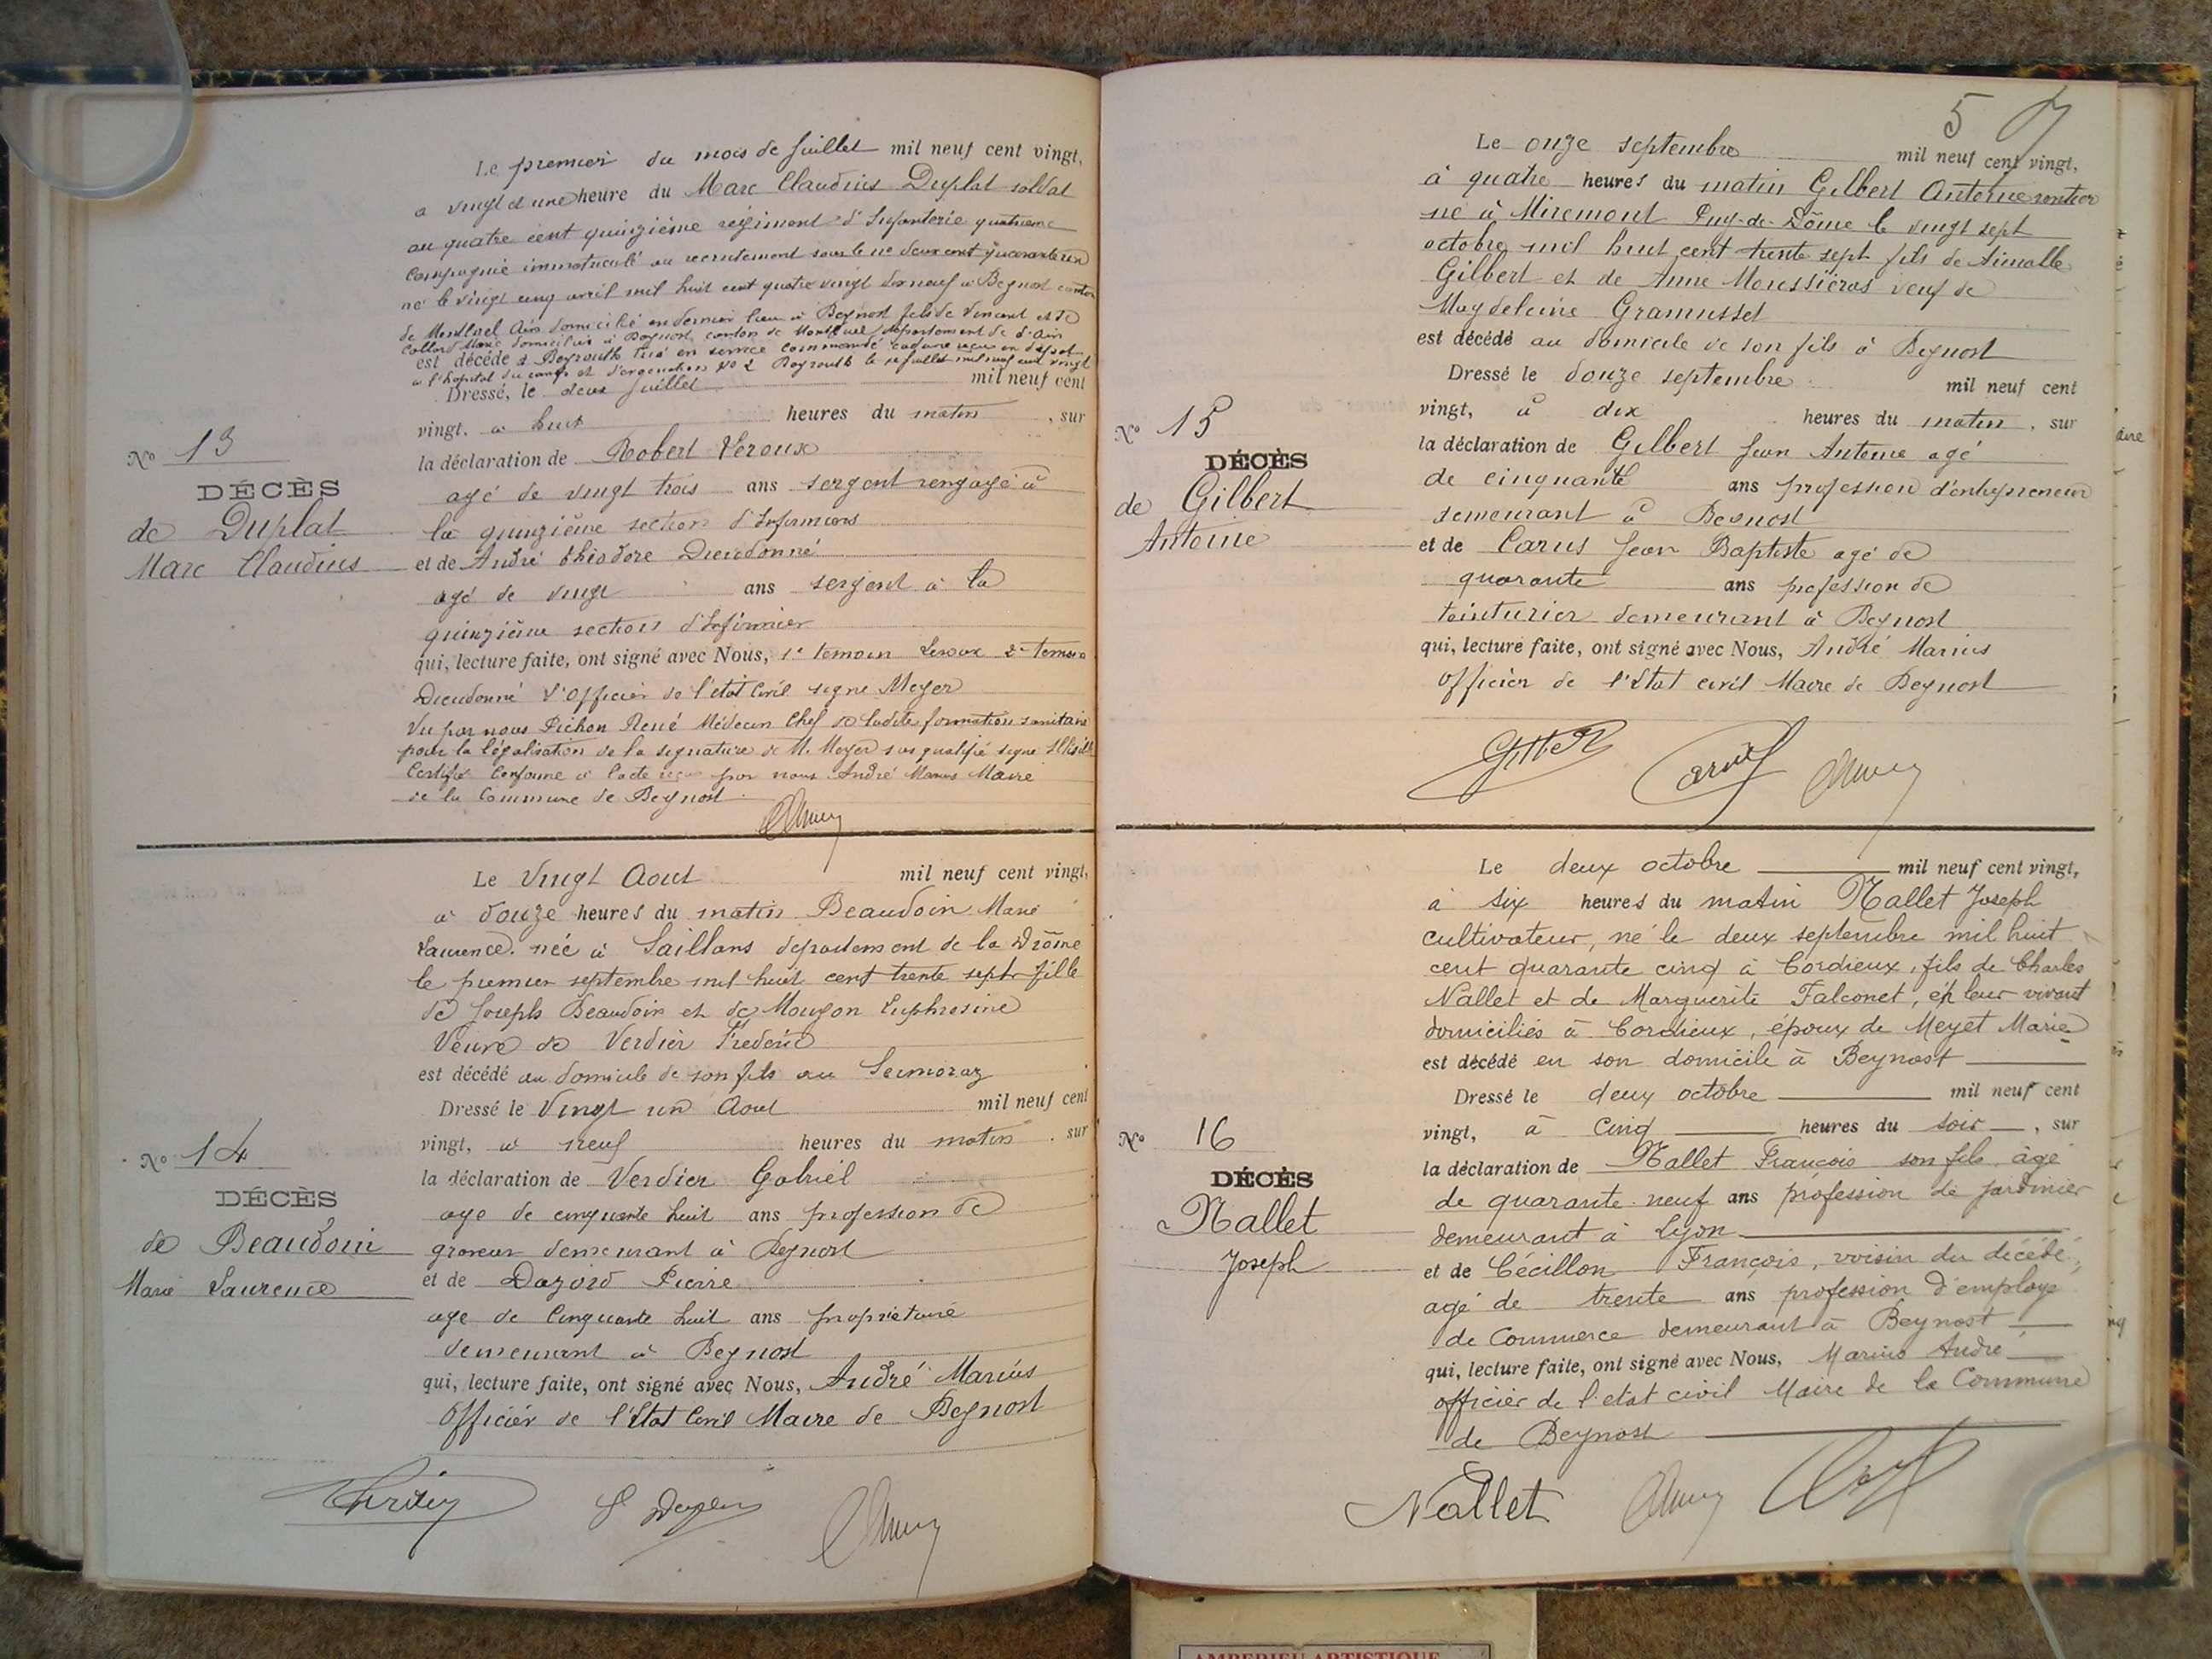 Le premier du mois de Juillet mil neuf cent vingt,
a vingt et une heure du Marc Claudius Duplat soldat
au quatre cent quinzième régiment d'Infanterie quatrieme
Compagnie immatriculé au recrutement sous le no deux cent quarante un
né le vingt cinq avril mil huit cent quatre vingt dix neuf à Beynost canton
de Montluel Ain domicilié en dernier lieu à Beynost fils de Vincent et de
Collard Marie domiciliés à Beynost canton de Montluel département de d'Ain
est décédé à Beyrouth tué en service commandé
à l'hopital du camp et No 2 Beyrouth le juillet mil neuf cent vingt
Dressé, le deux Juillet mil neuf cent
vingt, a huit heures du matin, sur
No 13
la déclaration de Robert Leroux
DÉCÈS
agé de vingt trois ans sergent rengagé à
de Duplat
la quinzième section d'Infirmiers
Marc Claudius
et de André Théodore Dieudonné
agé de vingt ans sergent à la
quinzième section d'Infirmier
qui, lecture faite, ont signé avec Nous, 1e temoin Leroux 2e temoin
Dieudonné l'Officier de l'état Civil signe Meyer
Vu par nous Pichon René Médecin Chef de ladite formation sanitaire
pour la légalisation de la signature de M. Meyer sus qualifié signe
Certifié Conforme à l'acte reçu par nous André Marius Maire
de la Commune de Beynost.
Le Vingt Aout mil neuf cent vingt,
a douze heures du matin Beaudoin Marie
Laurence. née à Saillans departement de la Drôme
le premier septembre mil huit cent trente sept fille
de Joseph Beaudoin et de Mouzon Euphrosine
Veuve de Verdier Frédéric
est décédé au domicile de son fils au Sermoraz
Dressé le Vingt un Aout mil neuf cent
vingt, a neuf heures du matin, sur
No 14
la déclaration de Verdier Gabriel
DÉCÈS
age de cinquante huit ans profession de
de Beaudoin
graveur demeurant à Beynost
Marie Laurence
et de Pierre
age de Cinquante huit ans propriétaire
demeurant à Beynost
qui, lecture faite, ont signé avec Nous, André Marius
Officier de l'état Civil Maire de Beynost
5
Le onze septembre mil neuf cent vingt,
à quatre heures du matin Gilbert Antoine rentier
né à Miremont Puy-de-Dôme le vingt sept
octobre mil huit cent trente sept fils de
Gilbert et de Anne veuf de
Magdeleine
est décédé au domicile de son fils à Beynost
Dressé le douze septembre mil neuf cent
vingt, à dix heures du matin, sur
No 15
la déclaration de Gilbert Jean Antoine agé
DÉCÈS
de cinquante ans profession d'entrepreneur
de Gilbert
demeurant à Beynost
Antoine
et de Carus Jean Baptiste agé de
quarante ans profession de
teinturier demeurant à Beynost
qui, lecture faite, ont signé avec Nous, André Marius
Officier de l'état civil Maire de Beynost
Le deux octobre mil neuf cent vingt,
à six heures du matin Nallet Joseph
cultivateur, né le deux septembre mil huit
cent quarante cinq à Cordieux, fils de Charles
Nallet et de Marguerite Falconet, en leur vivant
domiciliés à Cordieux, époux de Meyet Marie
est décédé en son domicile à Beynost
Dressé le deux octobre mil neuf cent
vingt, à Cinq heures du soir, sur
No 16
la déclaration de Nallet François son fils âgé
DÉCÈS
de quarante-neuf ans profession de jardinier
Nallet
demeurant à Lyon
Joseph
et de Cécillon François, voisin du décédé,
agé de trente ans profession d'employé
de Commerce demeurant à Beynost
qui, lecture faite, ont signé avec Nous, Marius André
officier de l'etat civil Maire de la Commune
de Beynost
Nallet
AMBERIEU ARTISTIQUE